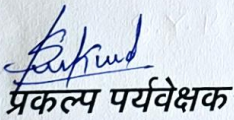 प्रकल्प पर्यवेक्षक